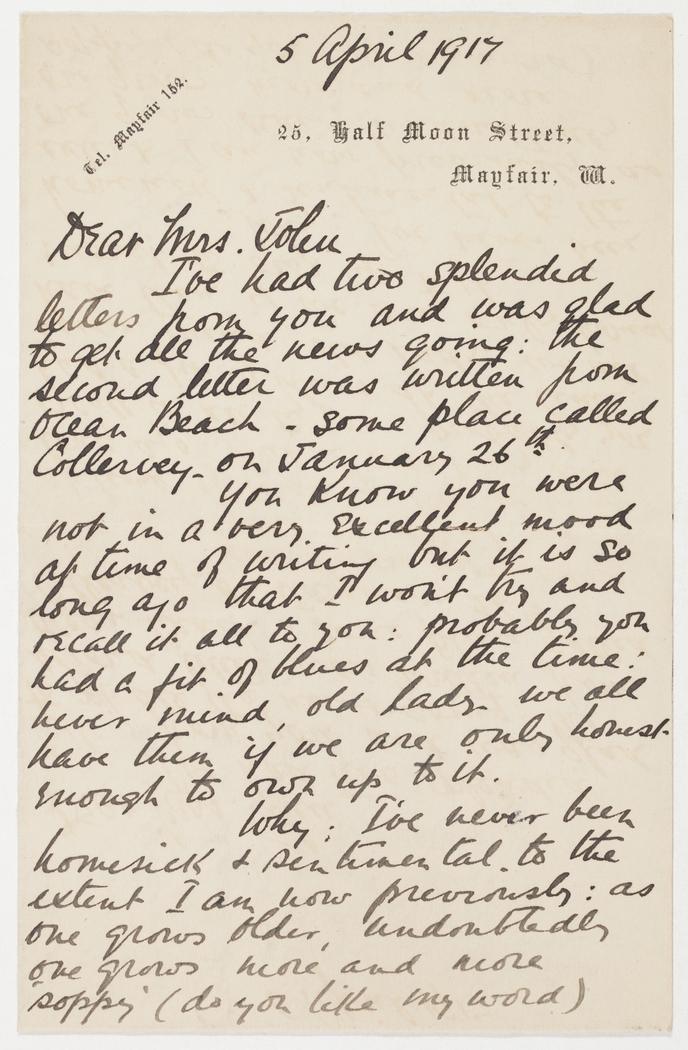 5 April 1917
Tel. Mayfair 152.
25, Half Moon Street,
Mayfair, W.
Dear Mrs. John
I've had two splendid
letters from you and was glad
to get all the news going: the
second letter was written from
Ocean Beach - some place called
Collervey - on January 26th.
You know you were
not in a very excellent mood
at time of writing but it is so
long ago that I won't try and
recall it all to you: probably you
had a fit of blues at the time:
never mind, old lady - we all
have them if we are only honest
enough to own up to it.
Why: I've never been
homesick & sentimental to the
extent I am now previously: as
one grows older, undoubtedly
one grows more and more
'soppy' (do you like my word)